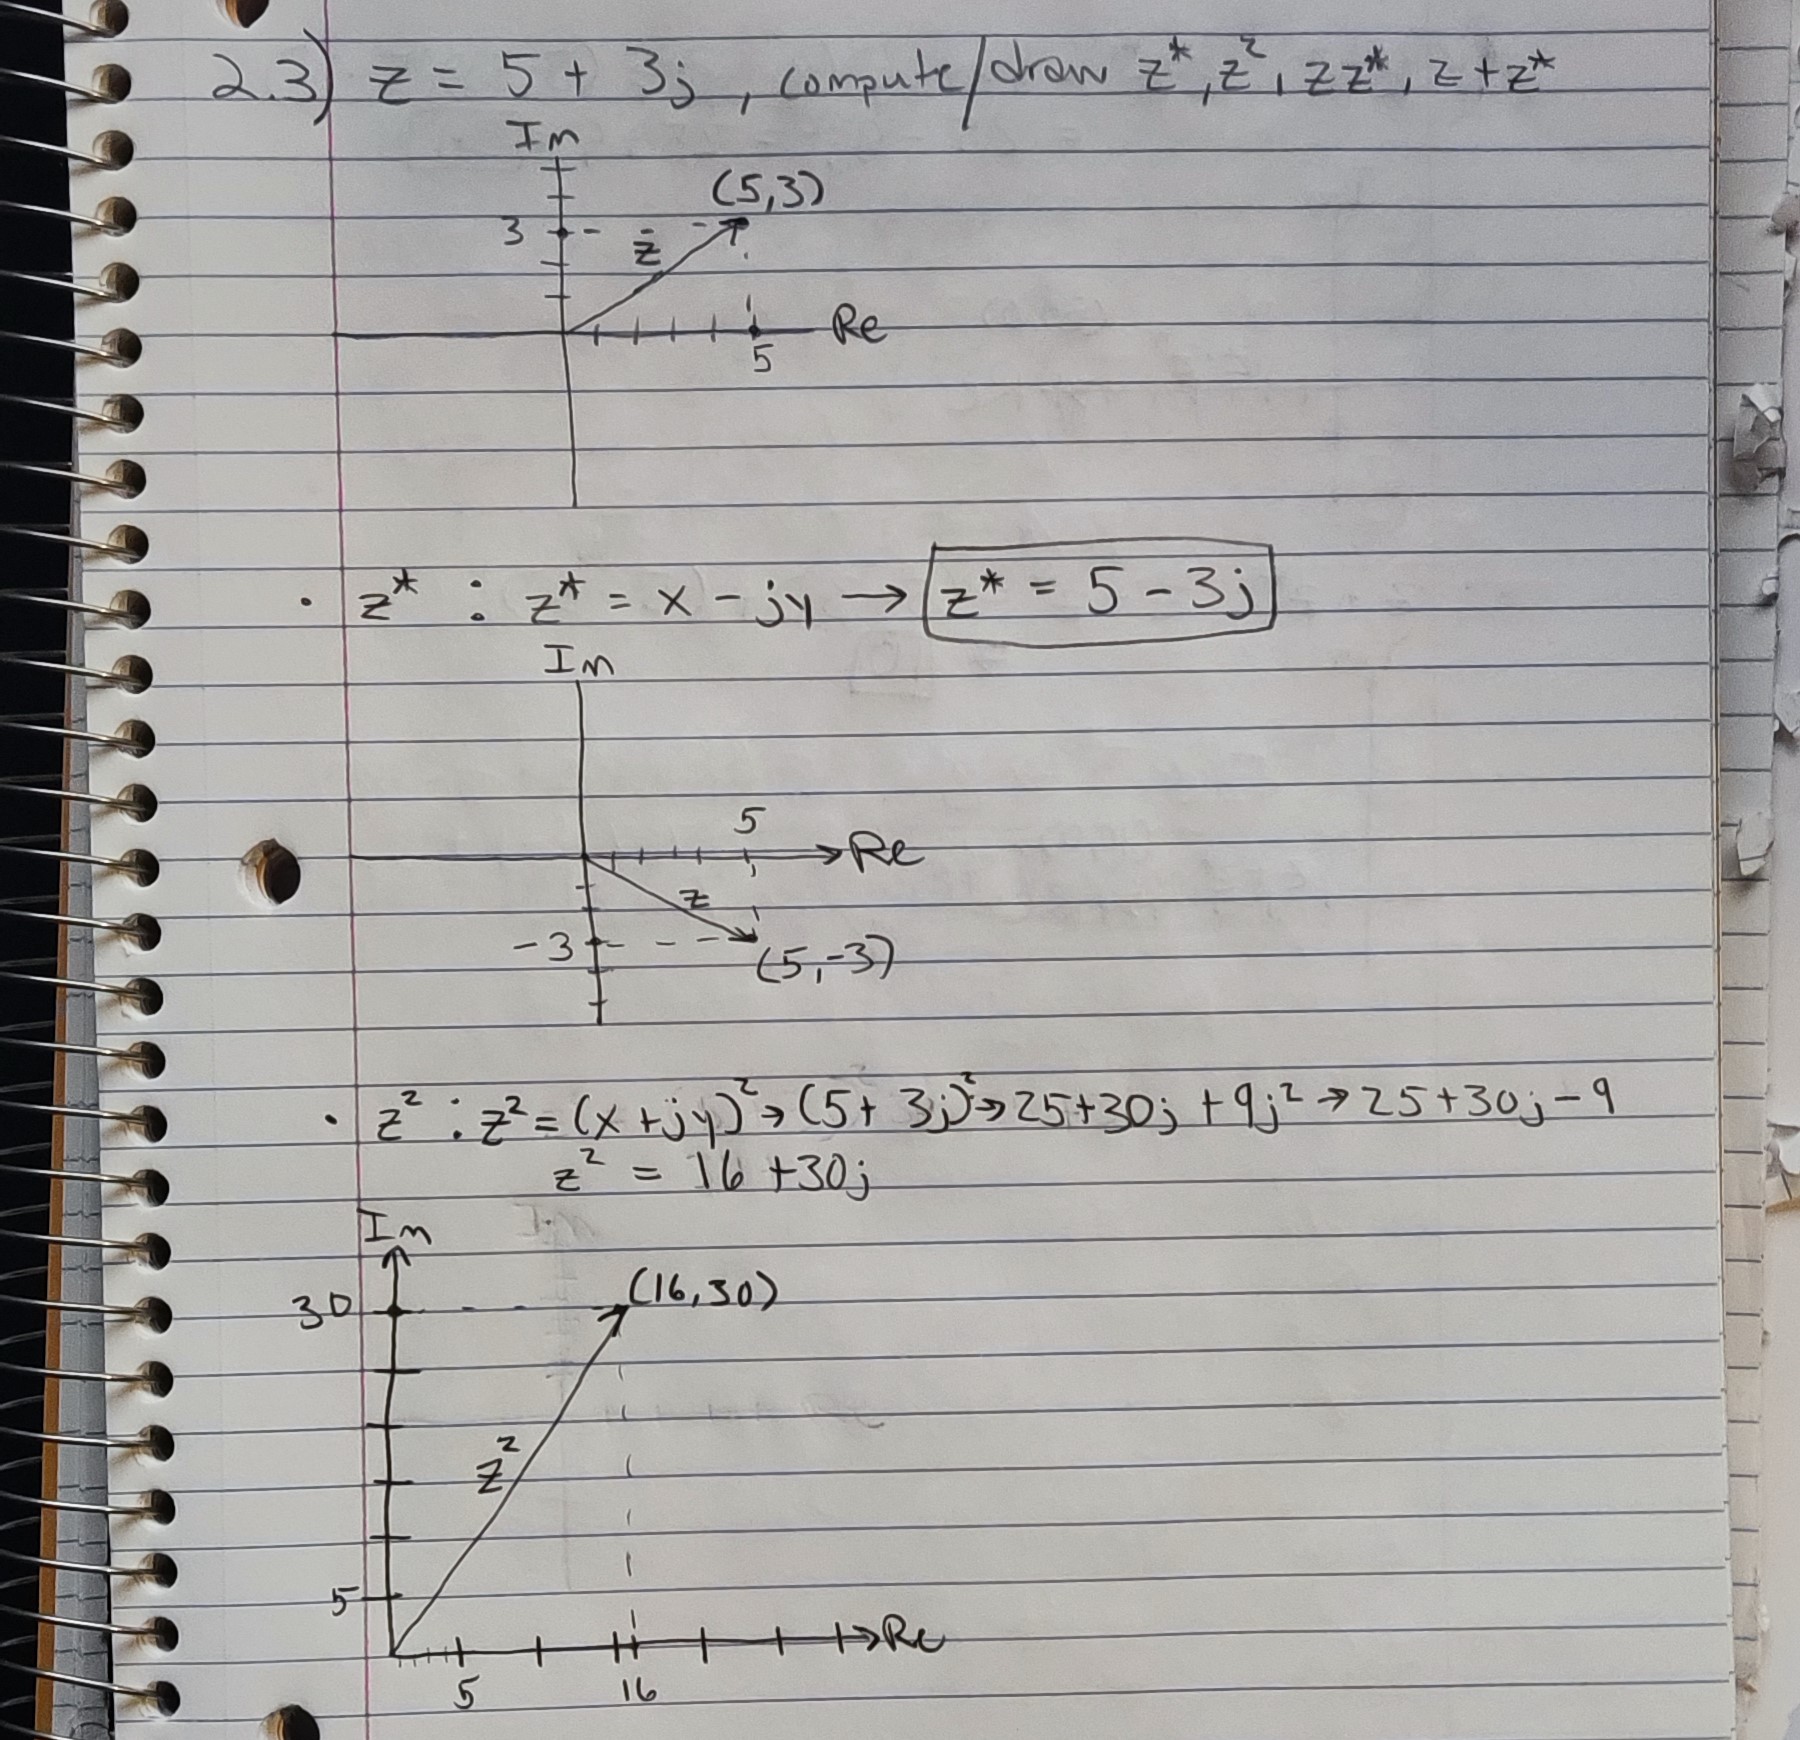 2.3) z = 5 + 3j, compute/draw z*, z², zz*, z+z*
Im
(5,3)
3
z
Re
5
· z* : z* = x - jy → z* = 5 - 3j
Im
5
Re
z
-3
(5,-3)
· z² : z² = (x + jy)² → (5 + 3j)² → 25+30j + 9j² → 25+30j-9
z² = 16 +30j
Im
30
(16,30)
z²
5
Re
5
16